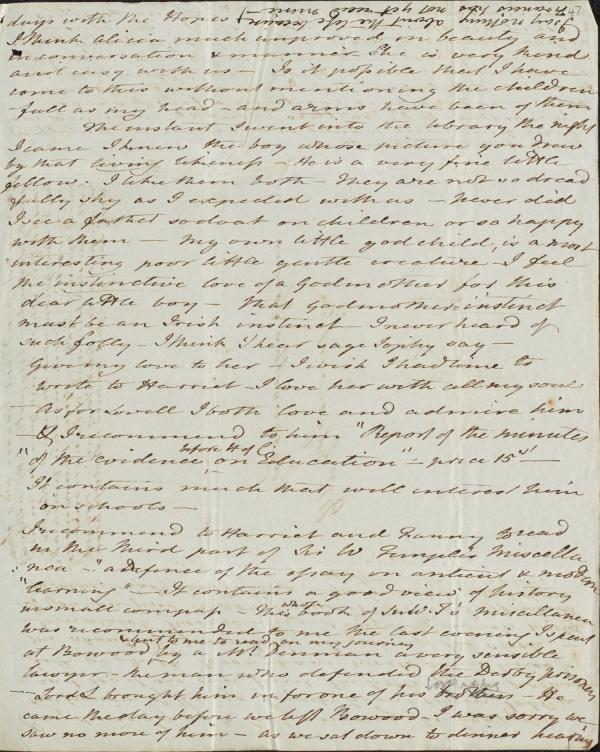 days with the Hopes
I think Alicia much improved in beauty and
in conversation & manner She is very kind
and easy with us — Is it possible that I have
come to this without mentioning the children
full as my head – and arms have been of them
The instant I went into the library the night
I came I knew the boy whose picture you drew
by that living likeness – He is a very fine little
fellow. I like them both – They are not so dread
fully shy as I expected with us – Never did
I see a father so doat on children or so happy
with them — My own little god child, is a most
interesting poor little gentle creature – I feel
the instinctive love of a Godmother for this
dear little boy – That Godmother-instinct
must be an Irish instinct – I never heard of
such folly – I think I hear sage Sophy say –
Give my love to her – I wish I had time to
write to Harriet – I love her with all my soul
– As for Sovell I both love and admire him
– & I recommend to him "Report of the minutes
before H of C
"of the evidence on Education" – price 15s —
It contains much that will interest him
on schools —
I recommend to Harriet and Fanny to read
in the third part of Sir W Temple's Miscella
nea – "a defence of the essay on antient & modern
"learning" – It contains a good view of history
in small compass – This whole book of Sir W. T's miscellanea
was recommended to me the last evening I spent
want to me to read on my journey
at Bowood by a Mr Denman a very sensible
lawyer – the man who defended the Derby prisoners
– Lord L brought him in for one of his
He
came the day before we left Bowood – I was sorry we
saw no more of him – as we sat down to dinner hearing